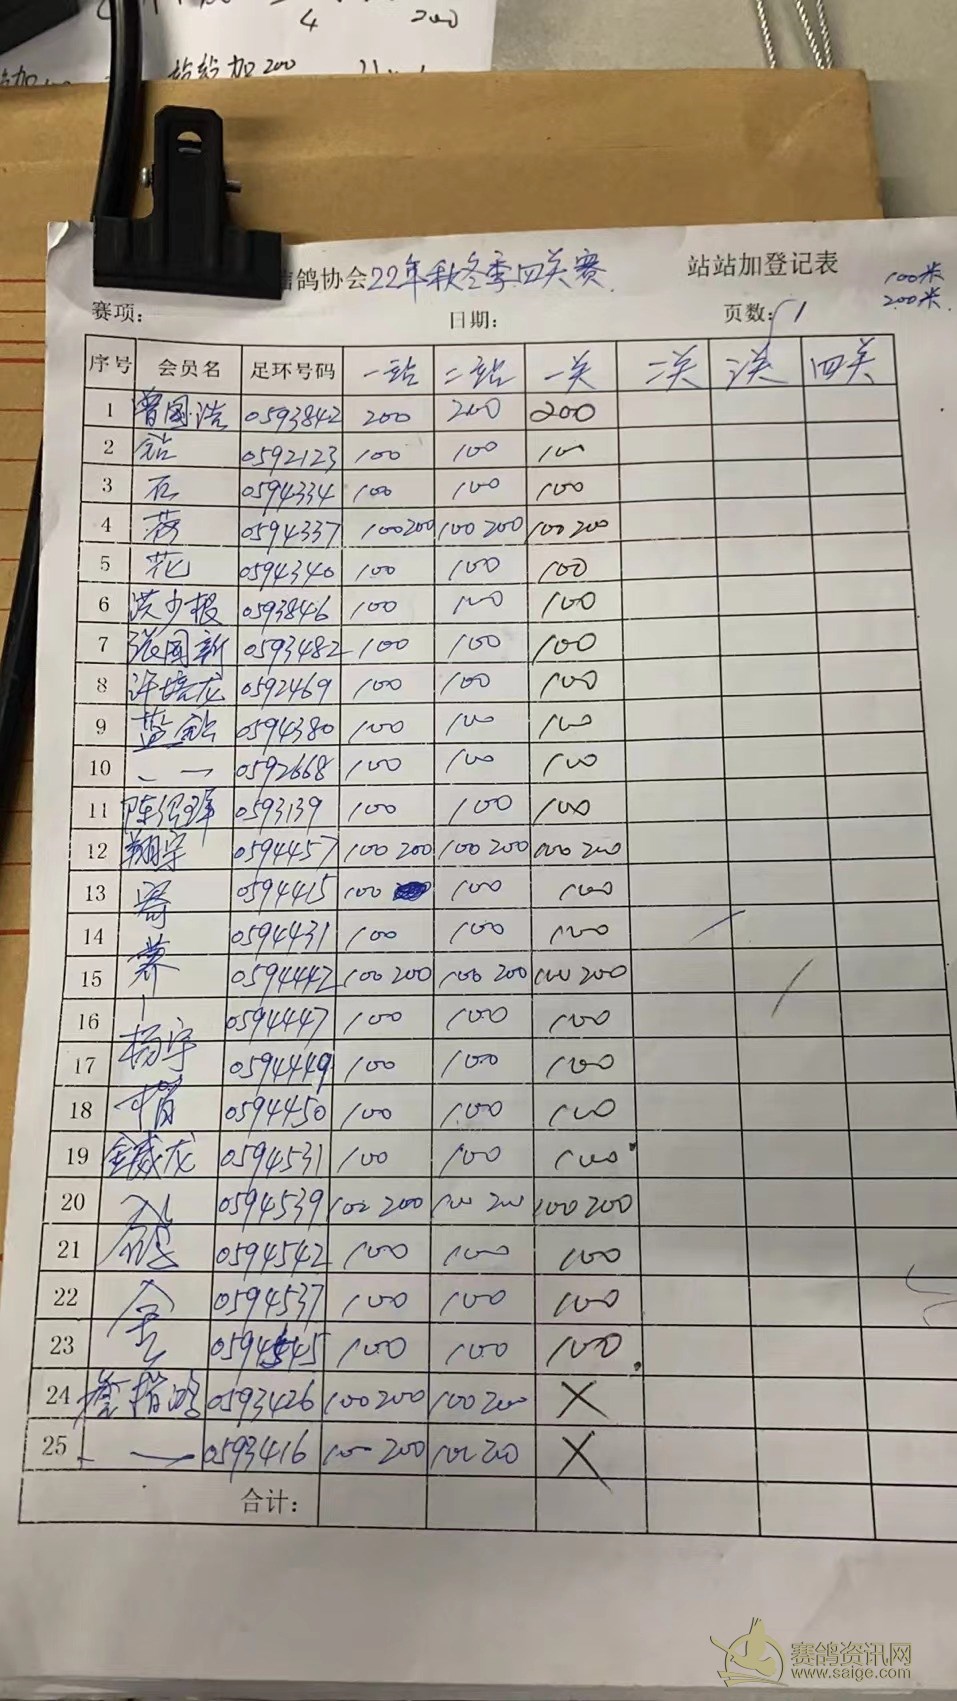 4 200
站站加200
信鸽协会22年秋冬季四关赛 站站加登记表
100米
200米
赛项: 日期: 页数: 1
序号 会员名 足环号码 一站 二站 一关 二关 三关 四关
1 曾国浩 0593842 200 200 200
2 钻 0592123 100 100 100
3 石 0594334 100 100 100
4 荷 0594337 100 200 100 200 100 200
5 花 0594340 100 100 100
6 洪少报 0593846 100 100 100
7 张国新 0593482 100 100 100
8 许培龙 0592469 100 100 100
9 蓝钻 0594380 100 100 100
10 0592668 100 100 100
11 0593139 100 100 100
12 翔宇 0594457 100 200 100 200 100 200
13 寄 0594415 100 100 100
14 0594431 100 100 100
15 养 0594442 100 200 100 200 100 200
16 0594447 100 100 100
17 杨宇 0594449 100 100 100
18 0594450 100 100 100
19 金威龙 0594531 100 100 100
20 0594539 100 200 100 200 100 200
21 鸽 0594542 100 100 100
22 0594537 100 100 100
23 舍 0594545 100 100 100
24 0593426 100 200 100 200 X
25 0593416 100 200 100 200 X
合计:
赛鸽资讯网
www.saige.com